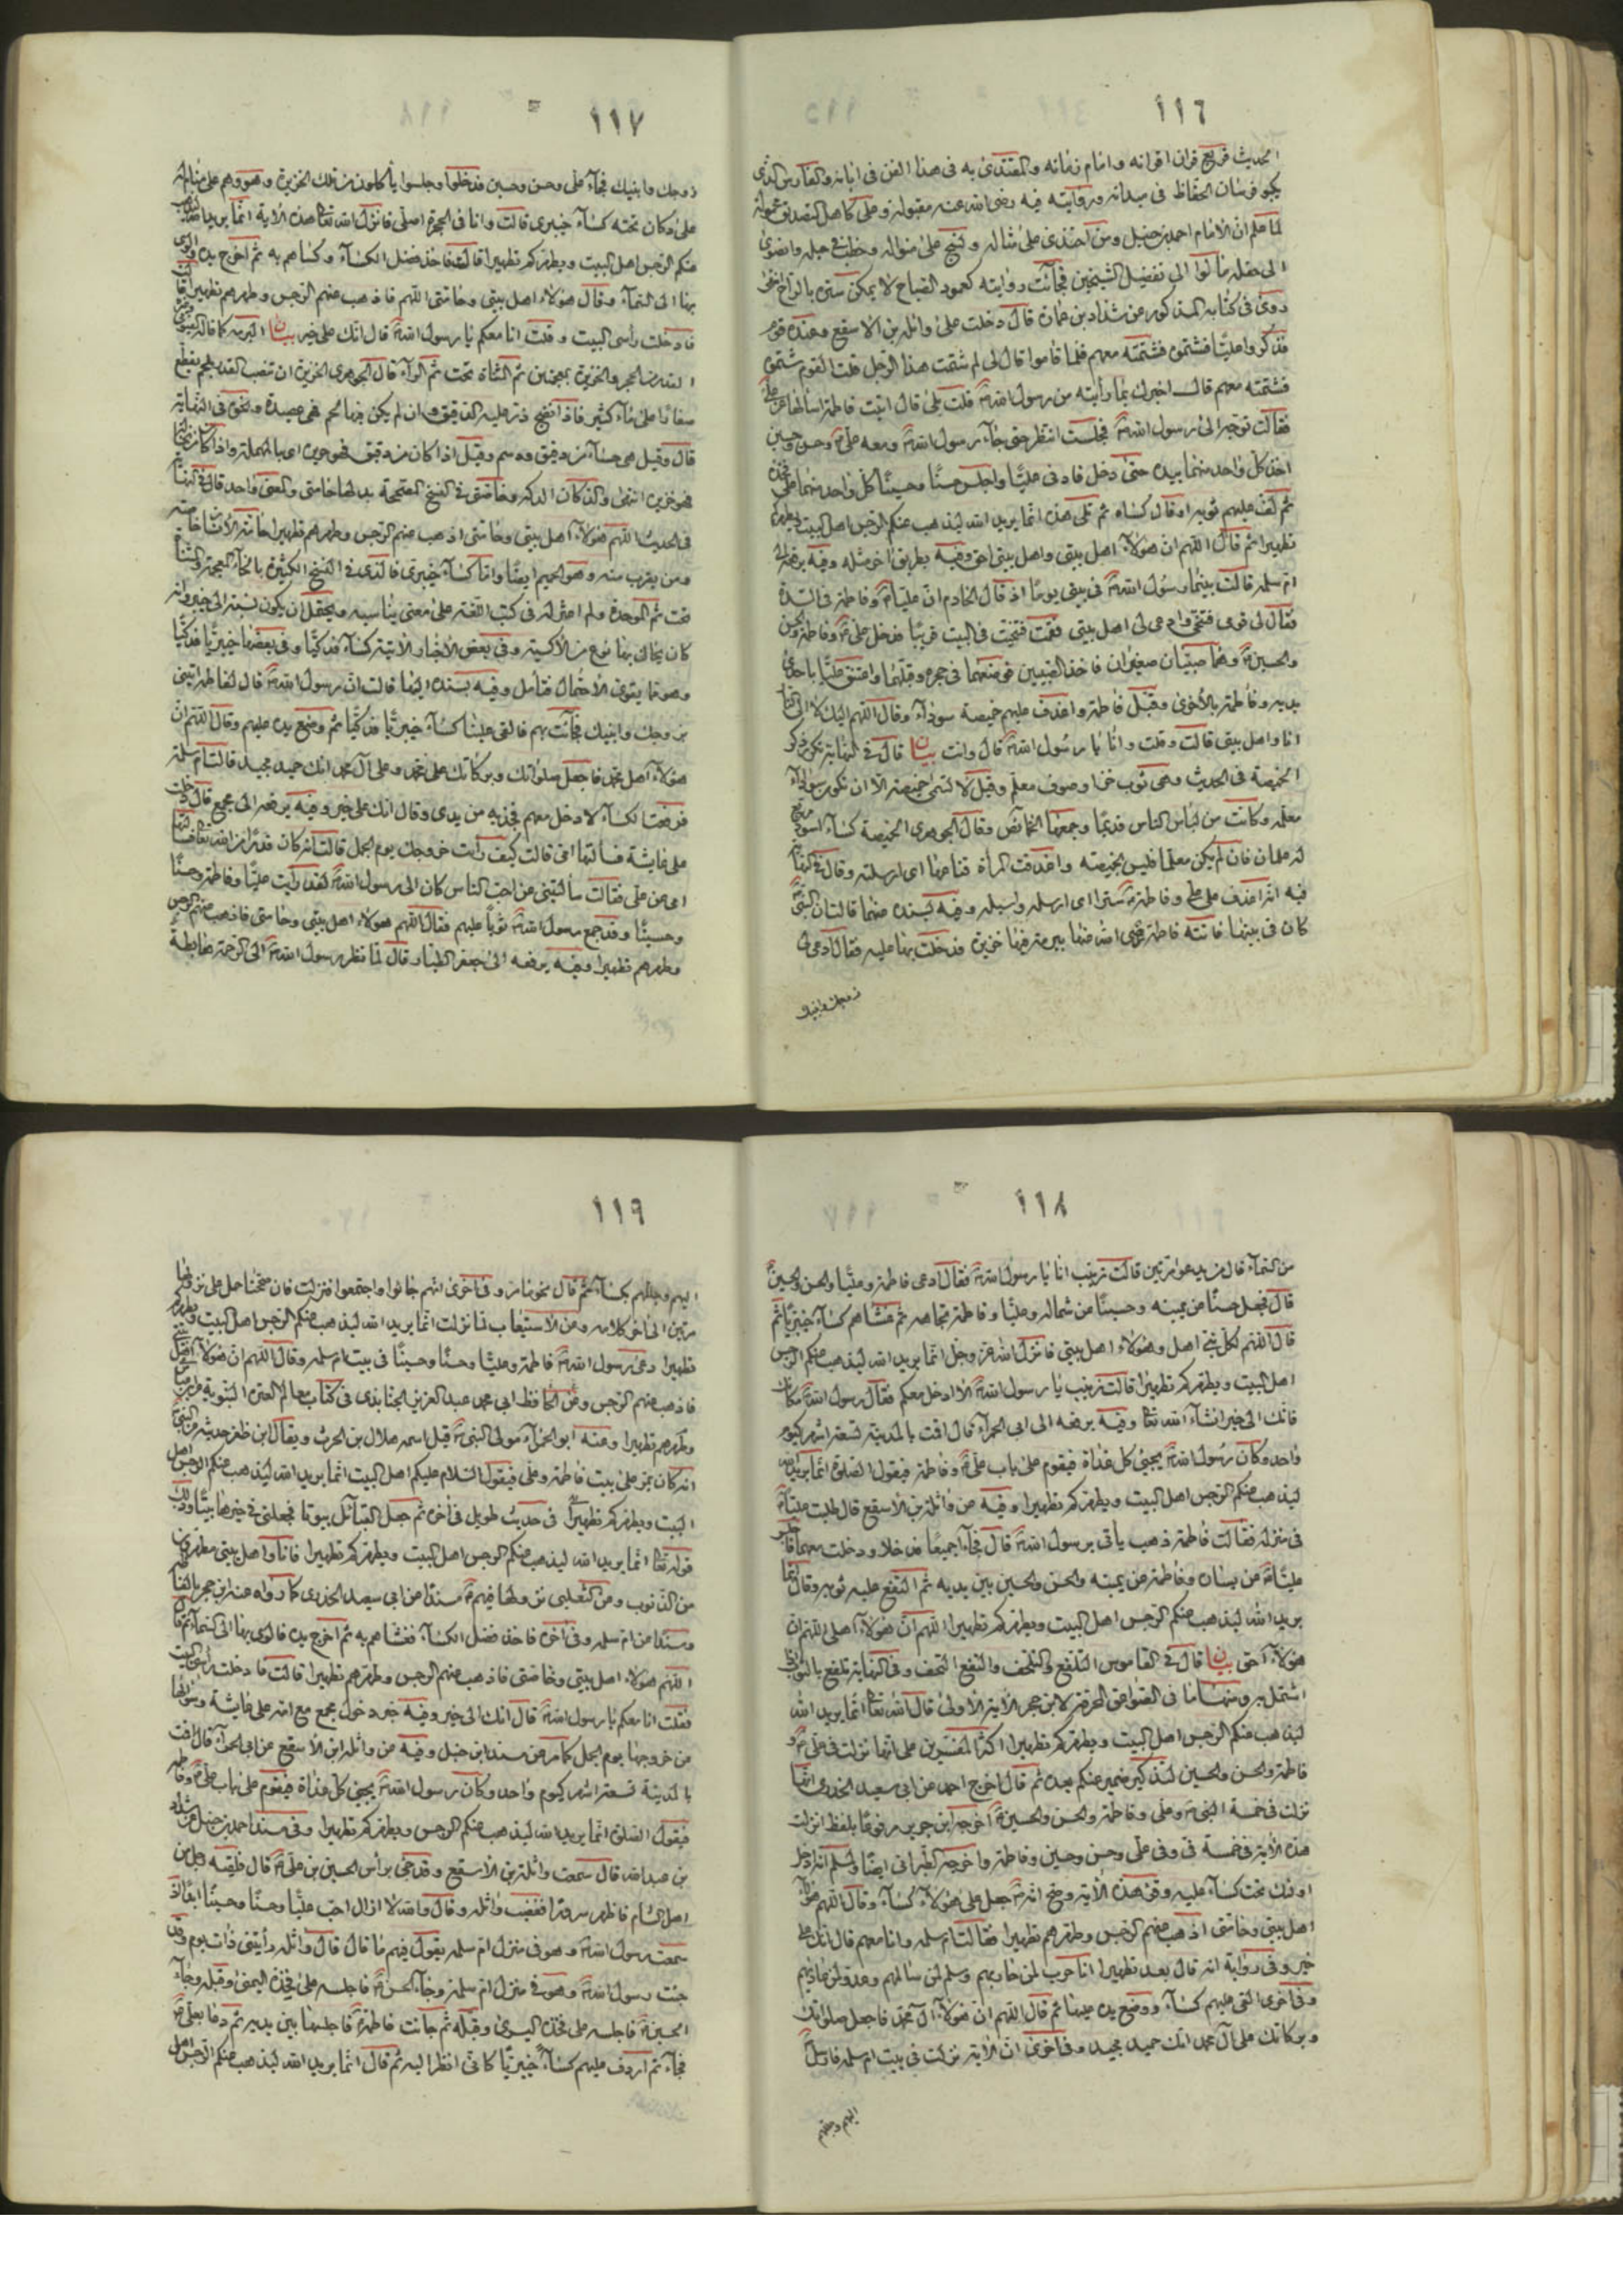 ١١٦
الحديث قريع اقرانه وامام زمانه والمقتدى به فى هذا الفن فى ابانه والفارس الذى
يكبو فرسان الحفاظ فى ميدانه ورقايته فيه رضى الله عنه مقبولة وعلى كاهل التصديق محمولة
لما علم ان الامام احمد بن حنبل ومن احتذى على مثاله ونسج على منواله وحطب فى حبله وانضوى
الى حفله مالوا الى تفضيل الشيخين فجاءت روايته كعمود الصباح لا يمكن ستره بالراح انتهى
روى فى كتابه المذكور عن شداد بن عمار قال دخلت على واثلة بن الاسقع وعنده قوم
فذكروا عليا فشتموه فشتمته معهم فلما قاموا قال لى لم شتمت هذا الرجل قلت القوم شتموه
فشتمته معهم قال الا اخبرك بما رأيته من رسول الله قلت بلى قال اتيت فاطمة اسألها عن على
فقالت توجه الى رسول الله فجلست انتظر حتى جاء رسول الله ومعه على وحسن وحسين
اخذ كل واحد منهما بيده حتى دخل فادنى عليا واجلس حسنا وحسينا كل واحد منهما على فخذه
ثم لف عليهم ثوبه او قال كساء ثم تلى هذه انما يريد الله ليذهب عنكم الرجس اهل البيت ويطهركم
تطهيرا ثم قال اللهم ان هؤلاء اهل بيتى واهل بيتى احق وفيه بطريق اخر مثله وفيه يرفعه الى
ام سلمه قالت بينما رسول الله فى بيتى يوما اذ قال الخادم ان عليا وفاطمة فى السدة
فقال لى قومى فتنحى وادعى لى اهل بيتى فقمت فتنحيت فى البيت قريبا فدخل على وفاطمة والحسن
والحسين وهما صبيان صغيران فاخذ الصبيين فوضعهما فى حجره وقبلهما واعتنق عليا باحدى
يديه وفاطمة بالاخرى وقبل فاطمة واغدف عليهم خميصة سوداء وقال اللهم اليك لا الى النار
انا واهل بيتى قالت وقلت وانا يا رسول الله قال وانت بيان قال فى النهاية تكرر ذكر
الخميصة فى الحديث وهى ثوب خز او صوف معلم وقيل لا تسمى خميصة الا ان تكون سوداء
معلمة وكانت من لباس الناس قديما وجمعها الخمائص وقال الجوهرى الخميصة كساء اسود مربع
له علمان فان لم يكن معلما فليس بخميصة واغدفت المرأة قناعها اى ارسلته وقال فى النهاية
فيه انه اغدف على على وفاطمة سترا اى ارسله واسبله وفيه بسنده عنها قالت ان النبى
كان فى بيتها فاتته فاطمة رضى الله عنها ببرمة فيها خزيرة فدخلت بها عليه فقال ادعى لى
زوجك وابنيك
١١٧
زوجك وابنيك فجاء على وحسن وحسين فدخلوا وجلسوا يأكلون من تلك الخزيرة وهو وهم على منامة
على دكان تحته كساء خيبرى قالت وانا فى الحجرة اصلى فانزل الله تعالى هذه الاية انما يريد الله ليذهب
عنكم الرجس اهل البيت ويطهركم تطهيرا قالت فاخذ فضل الكساء وكساهم به ثم اخرج يده فالوى
بها الى السماء وقال هؤلاء اهل بيتى وخاصتى اللهم فاذهب عنهم الرجس وطهرهم تطهيرا قالت
فادخلت رأسى البيت وقلت انا معكم يا رسول الله قال انك على خير بيان البرمة كما قاله
القدر من الحجر والخزيرة بمعجمتين ثم المثناة تحت ثم الراء قال الجوهرى الخزيرة ان تنصب القدر بلحم يقطع
صغارا على ماء كثير فاذا نضج ذر عليه الدقيق وان لم يكن فيها لحم فهى عصيدة ونحوه فى النهاية
قال وقيل هى حساء من دقيق ودسم وقيل اذا كان من دقيق فهو حريرة اى بالمهملة واذا كان من نخالة
فهو خزيرة انتهى
فى الحديث اللهم هؤلاء اهل بيتى وحامتى اذهب عنهم الرجس وطهرهم تطهيرا حامة الانسان خاصته
ومن يقرب منه وهو الحميم ايضا واما كساء خيبرى فالذى فى النسخ الكثيرة بالخاء المعجمة ثم المثناة
تحت ثم الموحدة ولم اعثر له فى كتب اللغة على معنى يناسبه ويحتمل ان يكون نسبة الى خيبر وانه
كان يحاك بها نوع من الاكسية وفى بعض الاخبار الاتية كساء فدكيا وفى بعضها خيبريا فدكيا
وهو مما يقوى الاحتمال فتأمل وفيه بسنده اليها قالت ان رسول الله قال لفاطمة ايتينى
بزوجك وابنيك فجاءت بهم فالقى عليهم كساء خيبريا فدكيا ثم وضع يده عليهم وقال اللهم ان
هؤلاء اهل محمد فاجعل صلواتك وبركاتك على محمد وعلى آل محمد انك حميد مجيد قالت ام سلمة
فرفعت الكساء لادخل معهم فجذبه من يدى وقال انك على خير وفيه يرفعه الى مجمع قال دخلت
على عايشة فسألتها امى قالت كيف رأيت خروجك يوم الجمل قالت انه كان قدرا من الله تعالى فسألتها
امى عن على فقالت سألتينى عن احب الناس كان الى رسول الله لقد رأيت عليا وفاطمة وحسنا
وحسينا وقد جمع رسول الله ثوبا عليهم فقال اللهم هؤلاء اهل بيتى وخاصتى فاذهب عنهم الرجس
وطهرهم تطهيرا وفيه يرفعه الى جعفر الطيار وقال لما نظر رسول الله الى الرحمة هابطة
١١٨
من السماء قال من يدعو مرتين قالت زينب انا يا رسول الله فقال ادعى فاطمة وعليا والحسن والحسين
قال فجعل حسنا من يمينه وحسينا من شماله وعليا وفاطمة تجاهه ثم غشاهم كساء خيبريا ثم
قال اللهم لكل نبى اهل وهؤلاء اهل بيتى فانزل الله عز وجل انما يريد الله ليذهب عنكم الرجس
اهل البيت ويطهركم تطهيرا قالت زينب يا رسول الله الا ادخل معكم فقال رسول الله مكانك
فانك الى خير انشاء الله تعالى وفيه يرفعه الى ابى الحمراء قال اقمت بالمدينة تسعة اشهر كيوم
واحد وكان رسول الله يجيئ كل غداة فيقوم على باب على وفاطمة فيقول الصلوة انما يريد الله
ليذهب عنكم الرجس اهل البيت ويطهركم تطهيرا وفيه عن واثلة بن الاسقع قال طلبت عليا
فى منزله فقالت فاطمة ذهب يأتى برسول الله قال فجاءا جميعا فدخلا ودخلت معهما فاجلس
عليا عن يساره وفاطمة عن يمينه والحسن والحسين بين يديه ثم التفع عليه ثوبه وقال انما
يريد الله ليذهب عنكم الرجس اهل البيت ويطهركم تطهيرا اللهم ان هؤلاء اهلى اللهم ان
هؤلاء احق بيان قال فى القاموس التلفع التلحف والتفع التحف وفى النهاية تلفع بالثوب اذا
اشتمل به ومنها ما فى الصواعق المحرقة لابن حجر الاية الاولى قال الله تعالى انما يريد الله
ليذهب عنكم الرجس اهل البيت ويطهركم تطهيرا اكثر المفسرين على انها نزلت فى على و
فاطمة والحسن والحسين لتذكير ضمير عنكم وما بعده ثم قال اخرج احمد عن ابى سعيد الخدرى انها
نزلت فى خمسة النبى وعلى وفاطمة والحسن والحسين اخرجه ابن جرير مرفوعا بلفظ انزلت
هذه الاية فى خمسة فى وفى على وحسن وحسين وفاطمة واخرجه الطبرانى ايضا ولمسلم انه ادخل
اولئك تحت كساء عليه وقرأ هذه الاية وصح انه جعل على هؤلاء كساء وقال اللهم هؤلاء
اهل بيتى وخاصتى اذهب عنهم الرجس وطهرهم تطهيرا فقالت ام سلمه وانا معهم قال انك على
خير وفى رواية انه قال بعد تطهيرا انا حرب لمن حاربهم وسلم لمن سالمهم وعدو لمن عاداهم
وفى اخرى القى عليهم كساء ووضع يده عليها ثم قال اللهم ان هؤلاء آل محمد فاجعل صلواتك
وبركاتك على آل محمد انك حميد مجيد وفى اخرى ان الاية نزلت فى بيت ام سلمه فارسل
اليهم وجللهم
١١٩
اليهم وجللهم بكساء ثم قال نحو ما مر وفى اخرى انهم جاؤا واجتمعوا فنزلت فان صحتا حمل على نزولها
مرتين الى اخر كلامه ومن الاستيعاب لما نزلت انما يريد الله ليذهب عنكم الرجس اهل البيت ويطهركم
تطهيرا دعى رسول الله فاطمة وعليا وحسنا وحسينا فى بيت ام سلمه وقال اللهم ان هؤلاء اهل بيتى
فاذهب عنهم الرجس ومن الحافظ ابى محمد عبد العزيز الجنابذى فى كتاب معالم العترة النبوية
وطهرهم تطهيرا وعنه ابو الحمراء مولى النبى قيل اسمه هلال بن الحرث ويقال ابن ظفر حديثه عن النبى
انه كان يمر على بيت فاطمة وعلى فيقول السلام عليكم اهل البيت انما يريد الله ليذهب عنكم الرجس اهل
البيت ويطهركم تطهيرا فى حديث طويل فى اخره ثم جعل القبائل بيوتا فجعلنى فى خيرها بيتا وذلك
قوله تعالى انما يريد الله ليذهب عنكم الرجس اهل البيت ويطهركم تطهيرا فانا واهل بيتى مطهرون
من الذنوب ومن الثعلبى نزولها فيهم مسندا عن ابى سعيد الخدرى كما رواه عنه ابن حجر
ومسندا عن ام سلمه وفى اخره فاخذ فضل الكساء فغشاهم به ثم اخرج يده فالوى بها الى السماء ثم قال
اللهم هؤلاء اهل بيتى وخاصتى فاذهب عنهم الرجس وطهرهم تطهيرا قالت فادخلت رأسى البيت
فقلت انا معكم يا رسول الله قال انك الى خير وفيه خبر دخول مجمع مع امه على عايشة وسؤالها
عن خروجها يوم الجمل كما مر عن مسند ابن حنبل وفيه عن واثلة ابن الاسقع عن ابى الحمراء قال اقمت
بالمدينة تسعة اشهر كيوم واحد وكان رسول الله يجيئ كل غداة فيقوم على باب على وفاطمة
فيقول الصلوة انما يريد الله ليذهب عنكم الرجس اهل البيت ويطهركم تطهيرا وفى مسند احمد بن حنبل عن شداد
بن عبد الله قال سمعت واثلة بن الاسقع وقد جئ برأس الحسين بن على قال فلقيه رجل من
اهل الشام فاظهر سرورا فغضب واثلة وقال والله لا ازال احب عليا وحسنا وحسينا ابدا اذ
سمعت رسول الله وهو فى منزل ام سلمه يقول فيهم ما قال قال واثلة رأيتنى ذات يوم وقد
جئت رسول الله وهو فى منزل ام سلمه وجاء الحسن فاجلسه على فخذه اليمنى وقبله وجاء
الحسين فاجلسه على فخذه اليسرى وقبله ثم جاءت فاطمة فاجلسها بين يديه ثم دعا بعلى
فجاء ثم اردف عليهم كساء خيبريا كانى انظر اليه ثم قال انما يريد الله ليذهب عنكم الرجس اهل